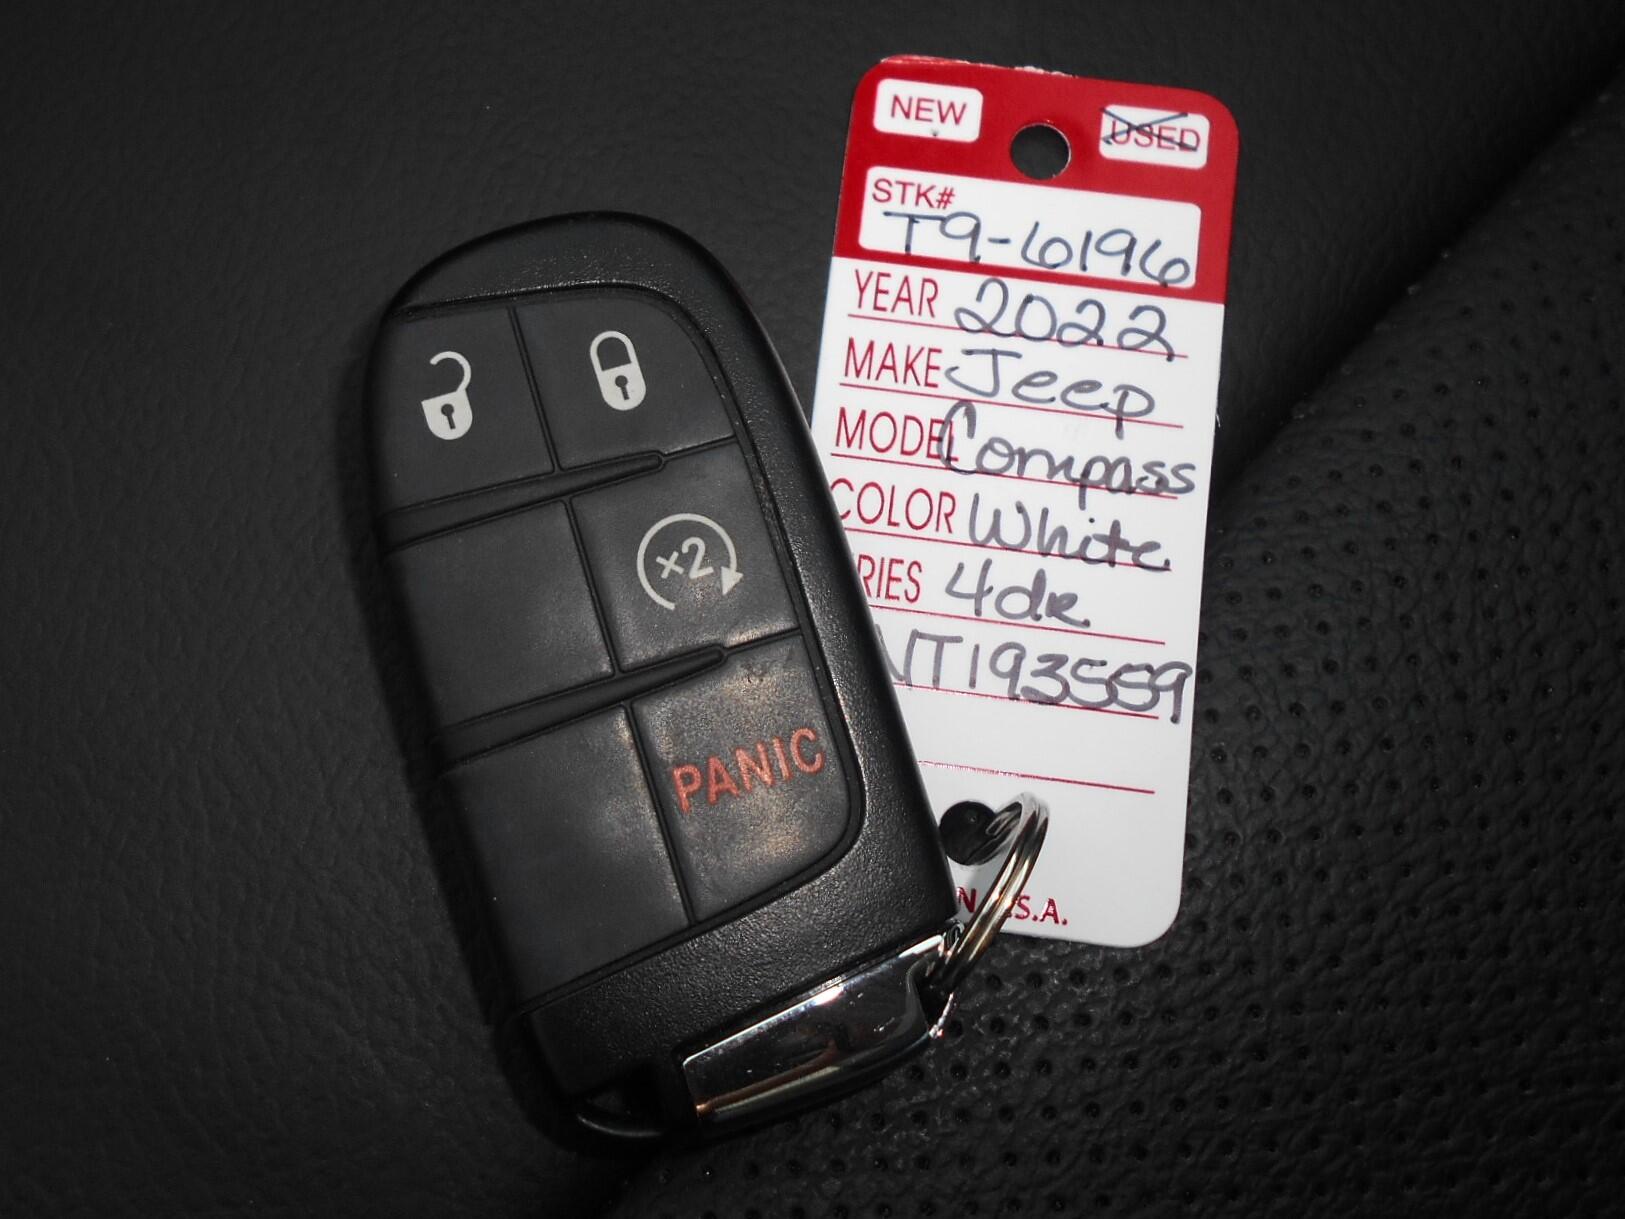 NEW USED
STK#
T9-6196
YEAR 2022
MAKE Jeep
MODEL Compass
COLOR White
RIES 4dr
NT193559
S.A.
×2
PANIC